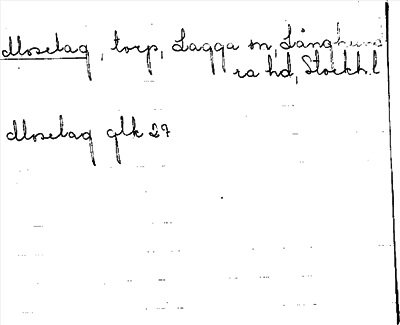 Moselag, torp, Lagga sn, Långhund
ra hd, Stockh.l
Moselag glk 27